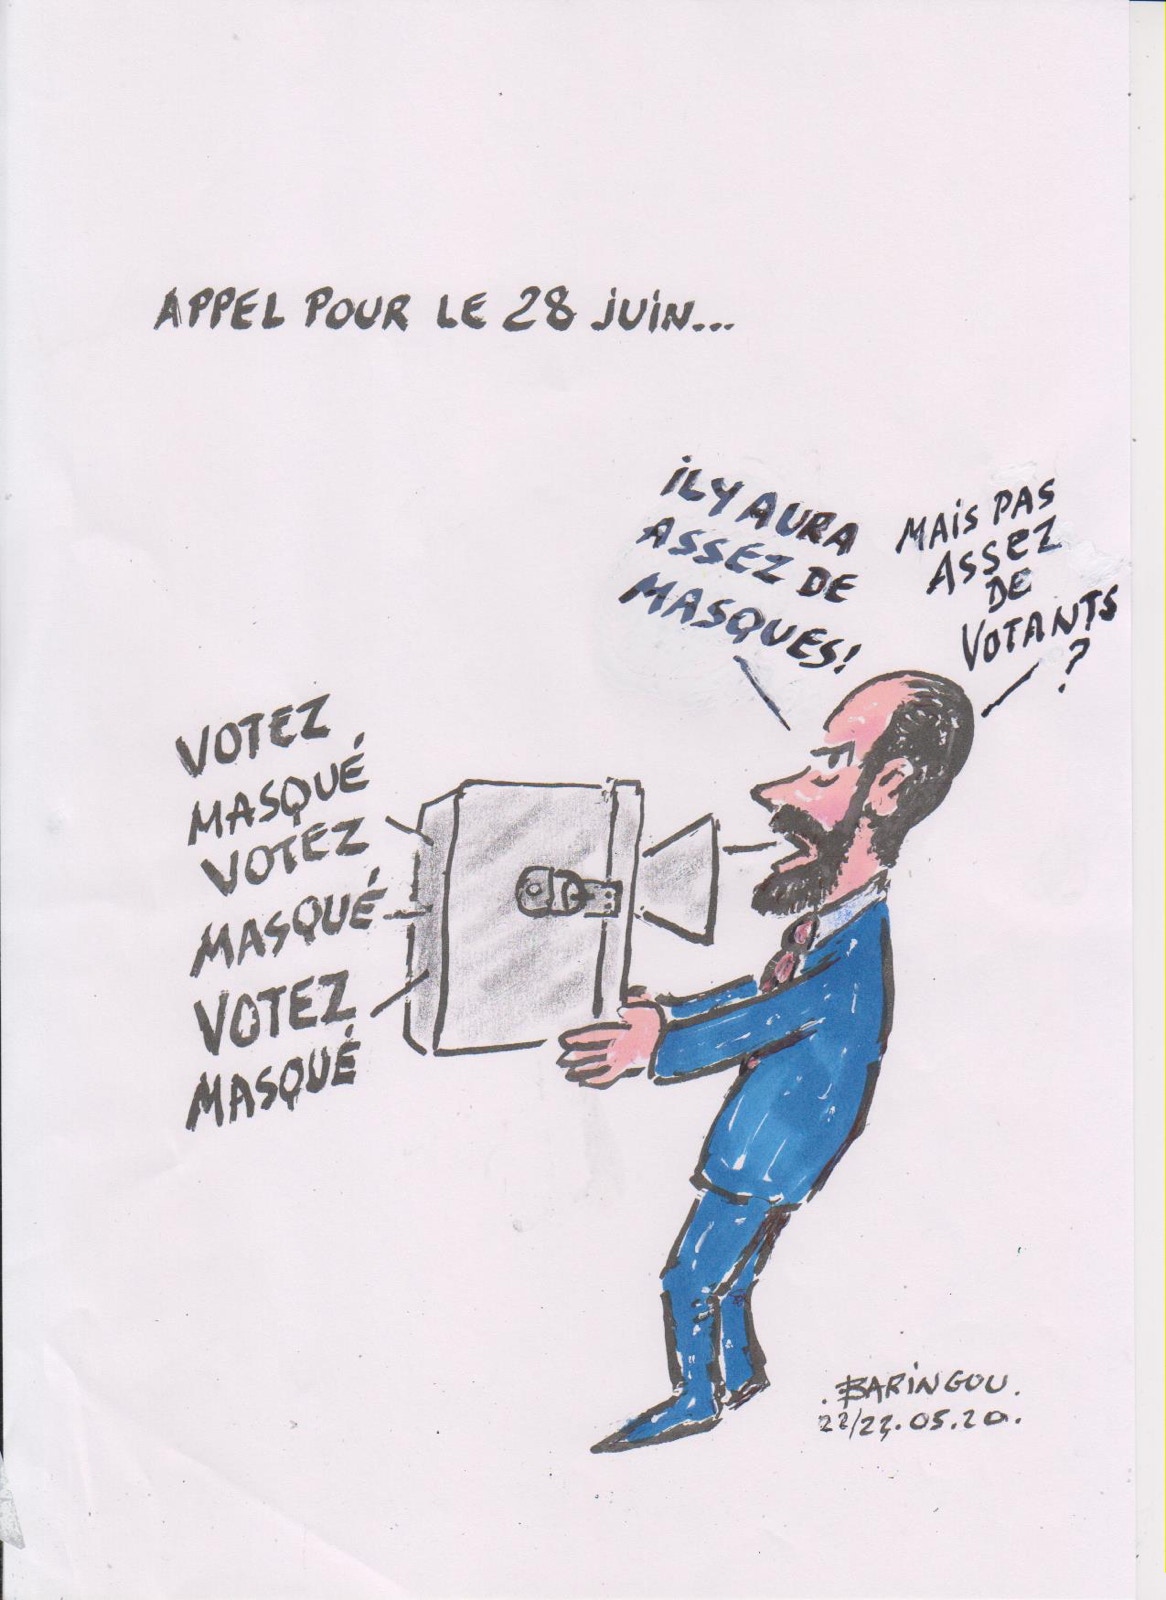 APPEL POUR LE 28 JUIN...
IL Y AURA
ASSEZ DE
MASQUES!
MAIS PAS
ASSEZ
DE
VOTANTS
?
VOTEZ
MASQUÉ
VOTEZ
MASQUÉ
VOTEZ
MASQUÉ
.BARINGOU.
22/23.05.20.